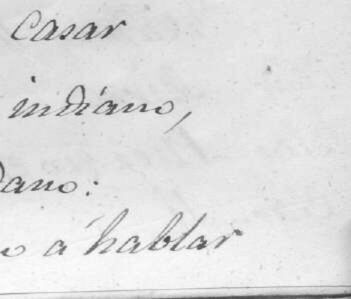 casar
indiano,
dano:
o á hablar